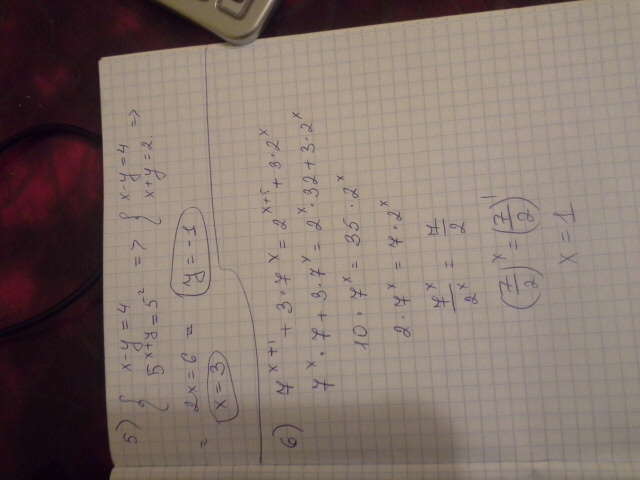 5) { x-y=4 => { x-y=4 =>
5^(x+y)=5² x+y=2
= 2x=6 = y=-1
x=3
6) 7^(x+1) + 3·7^x = 2^(x+5) + 3·2^x
7^x·7+3·7^x=2^x·32+3·2^x
10·7^x=35·2^x
2·7^x=7·2^x
7^x/2^x = 7/2
(7/2)^x=(7/2)^1
x=1